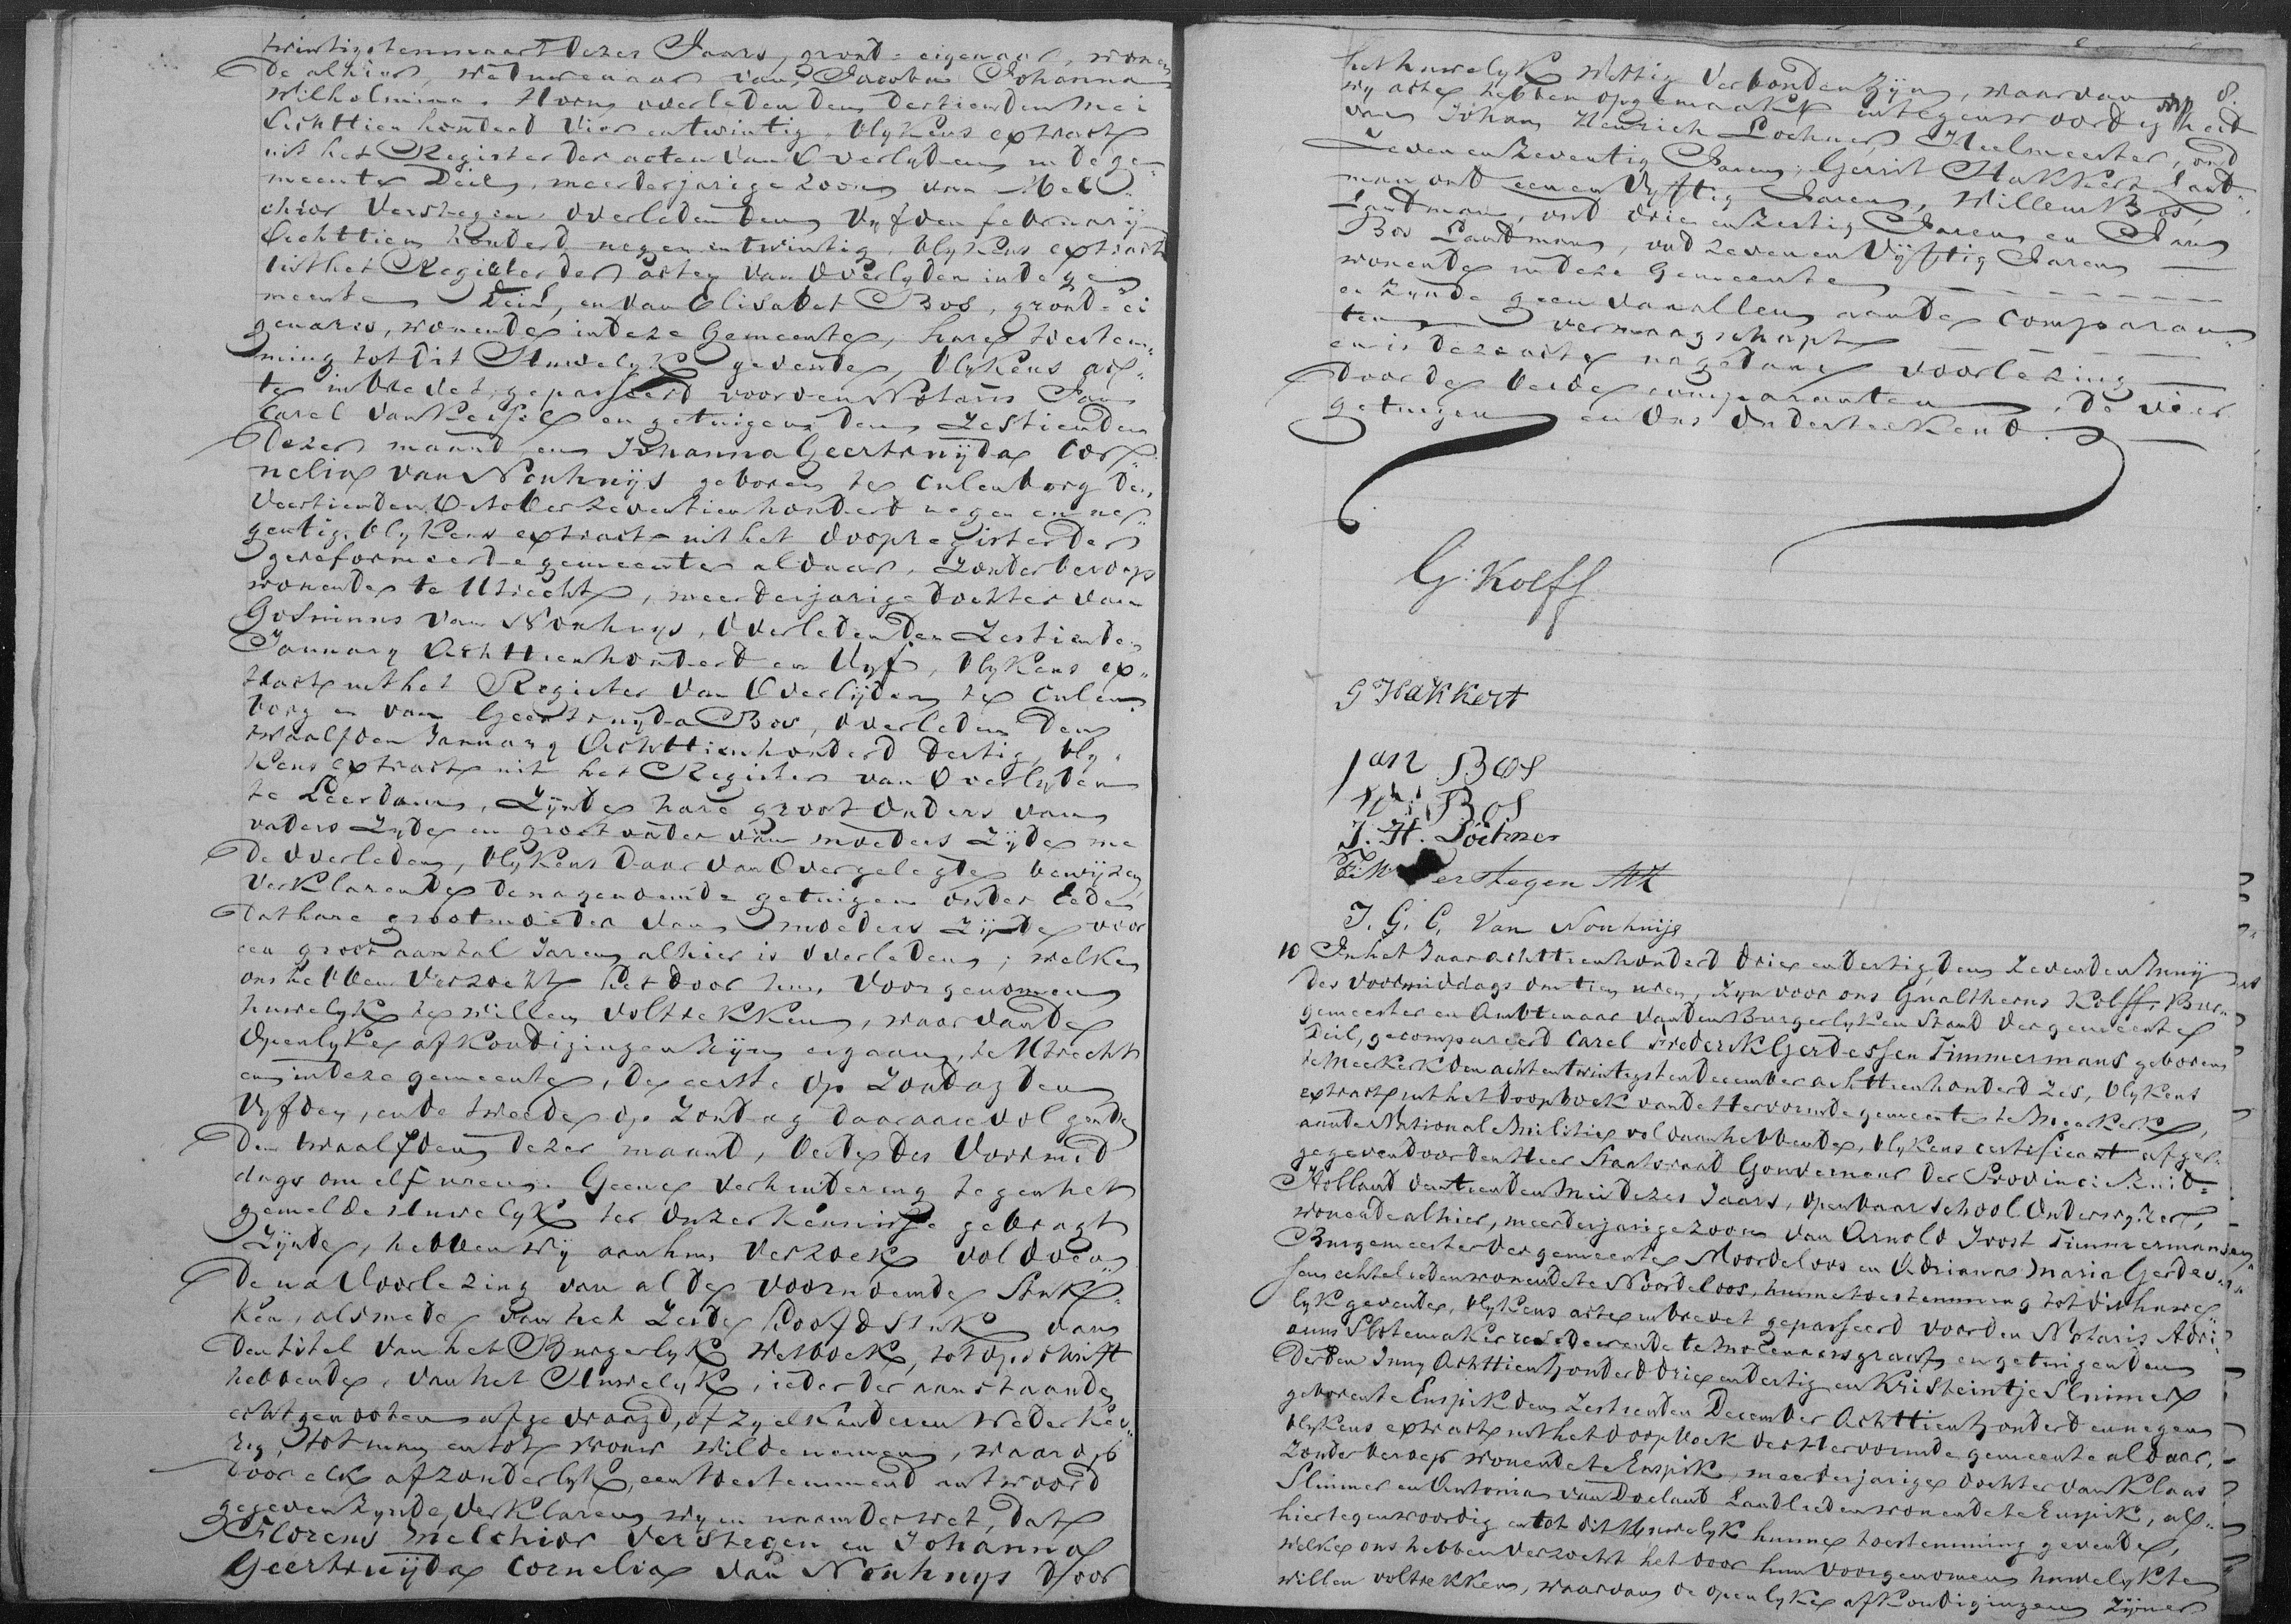 twintigsten maart dezer Jaars, grond-eigenaar, wonen
de alhier, weduwenaar van Jacoba Johanna
Wilhelmina Horn overleden den dertienden mei
Achttien honderd vier en twintig, blykens extract
uit het Register der acten van Overlyden in de ge-
meente Deil, meerderjarige zoon van Mel
chior Verstegen, overleden den vyfden february
Achttien honderd negen en twintig, blykens extract
uit het Register der acten van Overlyden in de ge
meente Deil, en van Elisabet Bos, grond-ei
genares, wonende in deze Gemeente, hare toestem-
ming tot dit Huwelyk gevende, blykens ac-
te in brevet, gepasseerd voor den Notaris Jan
Carel van Kessel en getuigen den zestienden
dezer maand en Johanna Geertruijda Cor-
nelia van Nouhuijs geboren te Culenborg den
veertienden October zeventien honderd negen en ne-
gentig, blykens extract uit het doopregister der
gereformeerde gemeente aldaar, zonder beroep
wonende te Utrecht, meerderjarige dochter van
Gosuinus van Nouhuys, overleden den zestienden
January Achttien honderd en vyf, blykens ex-
tract uit het Register van Overlijden te Culen-
borg en van Geertruyda Bos, overleden den
twaalfden January Achttien honderd dertig, bly-
kens extract uit het Register van Overlyden
te Leerdam, zijnde hare groot ouders van
vaders zyde en groot vader van moeders zijde me
de overleden, blykens daar van overgelegde bewijzen
verklarende de nagenoemde getuigen onder eede
dat hare grootmoeder van moeders zijde voor
een groot aantal Jaren alhier is overleden; welke
ons hebben verzocht het door hun voorgenomen
huwelyk te willen voltrekken, waar van de
openlyke afkondigingen zijn gegaan, te Utrecht
en in deze gemeente, de eerste op zondag den
vyfden, en de tweede op zondag daaraanvolgende
den twaalfden dezer maand, beide des voormid
dags om elf uren. Geene verhindering tegen het
gemelde Huwelyk ter onzer kennisse gebragt
zijnde, hebben wij aan hun verzoek voldoen-
de na voorlezing van al de voornoemde stuk-
ken, alsmede van het zesde hoofdstuk van
den titel van het Burgerlyk Wetboek, tot opschrift
hebbende, van het Huwelyk, ieder der aanstaande
echtgenooten afgevraagd, of zy elkanderen wederkee-
rig, tot man en tot vrouw wilde nemen, waar op
door elk afzonderlyk, een toestemmend antwoord
gegeven zynde, verklaren wy in naam der wet, dat
Florens Melchior Verstegen en Johanna
Geertruijda Cornelia van Nouhuys door
8.
het huwelyk wettig verbonden zijn, waar van
wy acte hebben opgemaakt in tegenwoordigheid
van Johan Henrich Lochner, Heelmeester, oud
zeven en zeventig Jaren, Gerrit Hakkert Land-
man oud een en vyftig Jaren, Willem Bos,
Landman, oud drie en zestig Jaren en Jan
Bos Landman, oud zeven en vijftig Jaren
wonende in deze Gemeente
en zijnde geen van allen aan de comparan-
ten vermaagschapt
en is deze acte na gedane voorlezing
door de beide comparanten, de vier
getuigen en ons onderteekend.
G. Kolff
G Hakkert
jan Bos
Wm Bos
J. H. Löchner
F: M Verstegen
J. G. C. Van Nouhuijs
10 In het Jaar achttien honderd drie en dertig, den zevenden Junij
des voormiddags om tien uren, zyn voor ons Gualtherus Kolff, Bur-
gemeester en Ambtenaar van den Burgerlyken Stand der gemeente
Deil, gecompareerd Carel Frederik Gerdessen Timmermans geboren
te Meerkerk den acht en twintigsten december achttien honderd zes, blykens
extract uit het doopboek van de Hervormde gemeente te Meerkerk,
aan de Nationale Militie voldaan hebbende, blykens certificaat afge-
gegeven door den Heer Staatsraad Gouverneur der Provincie Zuid-
Holland den tienden Mei dezes Jaars, openbaar school onderwyzer,
wonende alhier, meerderjarige zoon van Arnold Joost Timmermans en
Burgemeester der gemeente Noordeloos en Adriana Maria Gerdes-
sen echtelieden wonende te Noordeloos, hunne toestemming tot dit huwe-
lyk gevende, blykens acte in brevet gepasseerd voor den Notaris Adri-
anus Slotemaker resideerende te Molenaarsgraaf, en getuigen den
derden Juny Achttien honderd drie en dertig en Kristeintje Slimmer
geboren te Enspik den zestienden December Achttien honderd en negen
blykens extract uit het doopboek der Hervormde gemeente aldaar,
zonder beroep wonende te Enspik, meerderjarige dochter van Klaas
Slimmer en Antonia van Doeland Landlieden wonende te Enspik, al-
hier tegenwoordig en tot dit Huwelyk hunne toestemming gevende,
welke ons hebben verzocht het door hun voorgenomen huwelyk te
willen voltrekken, waarvan de openlyke afkondigingen zijn